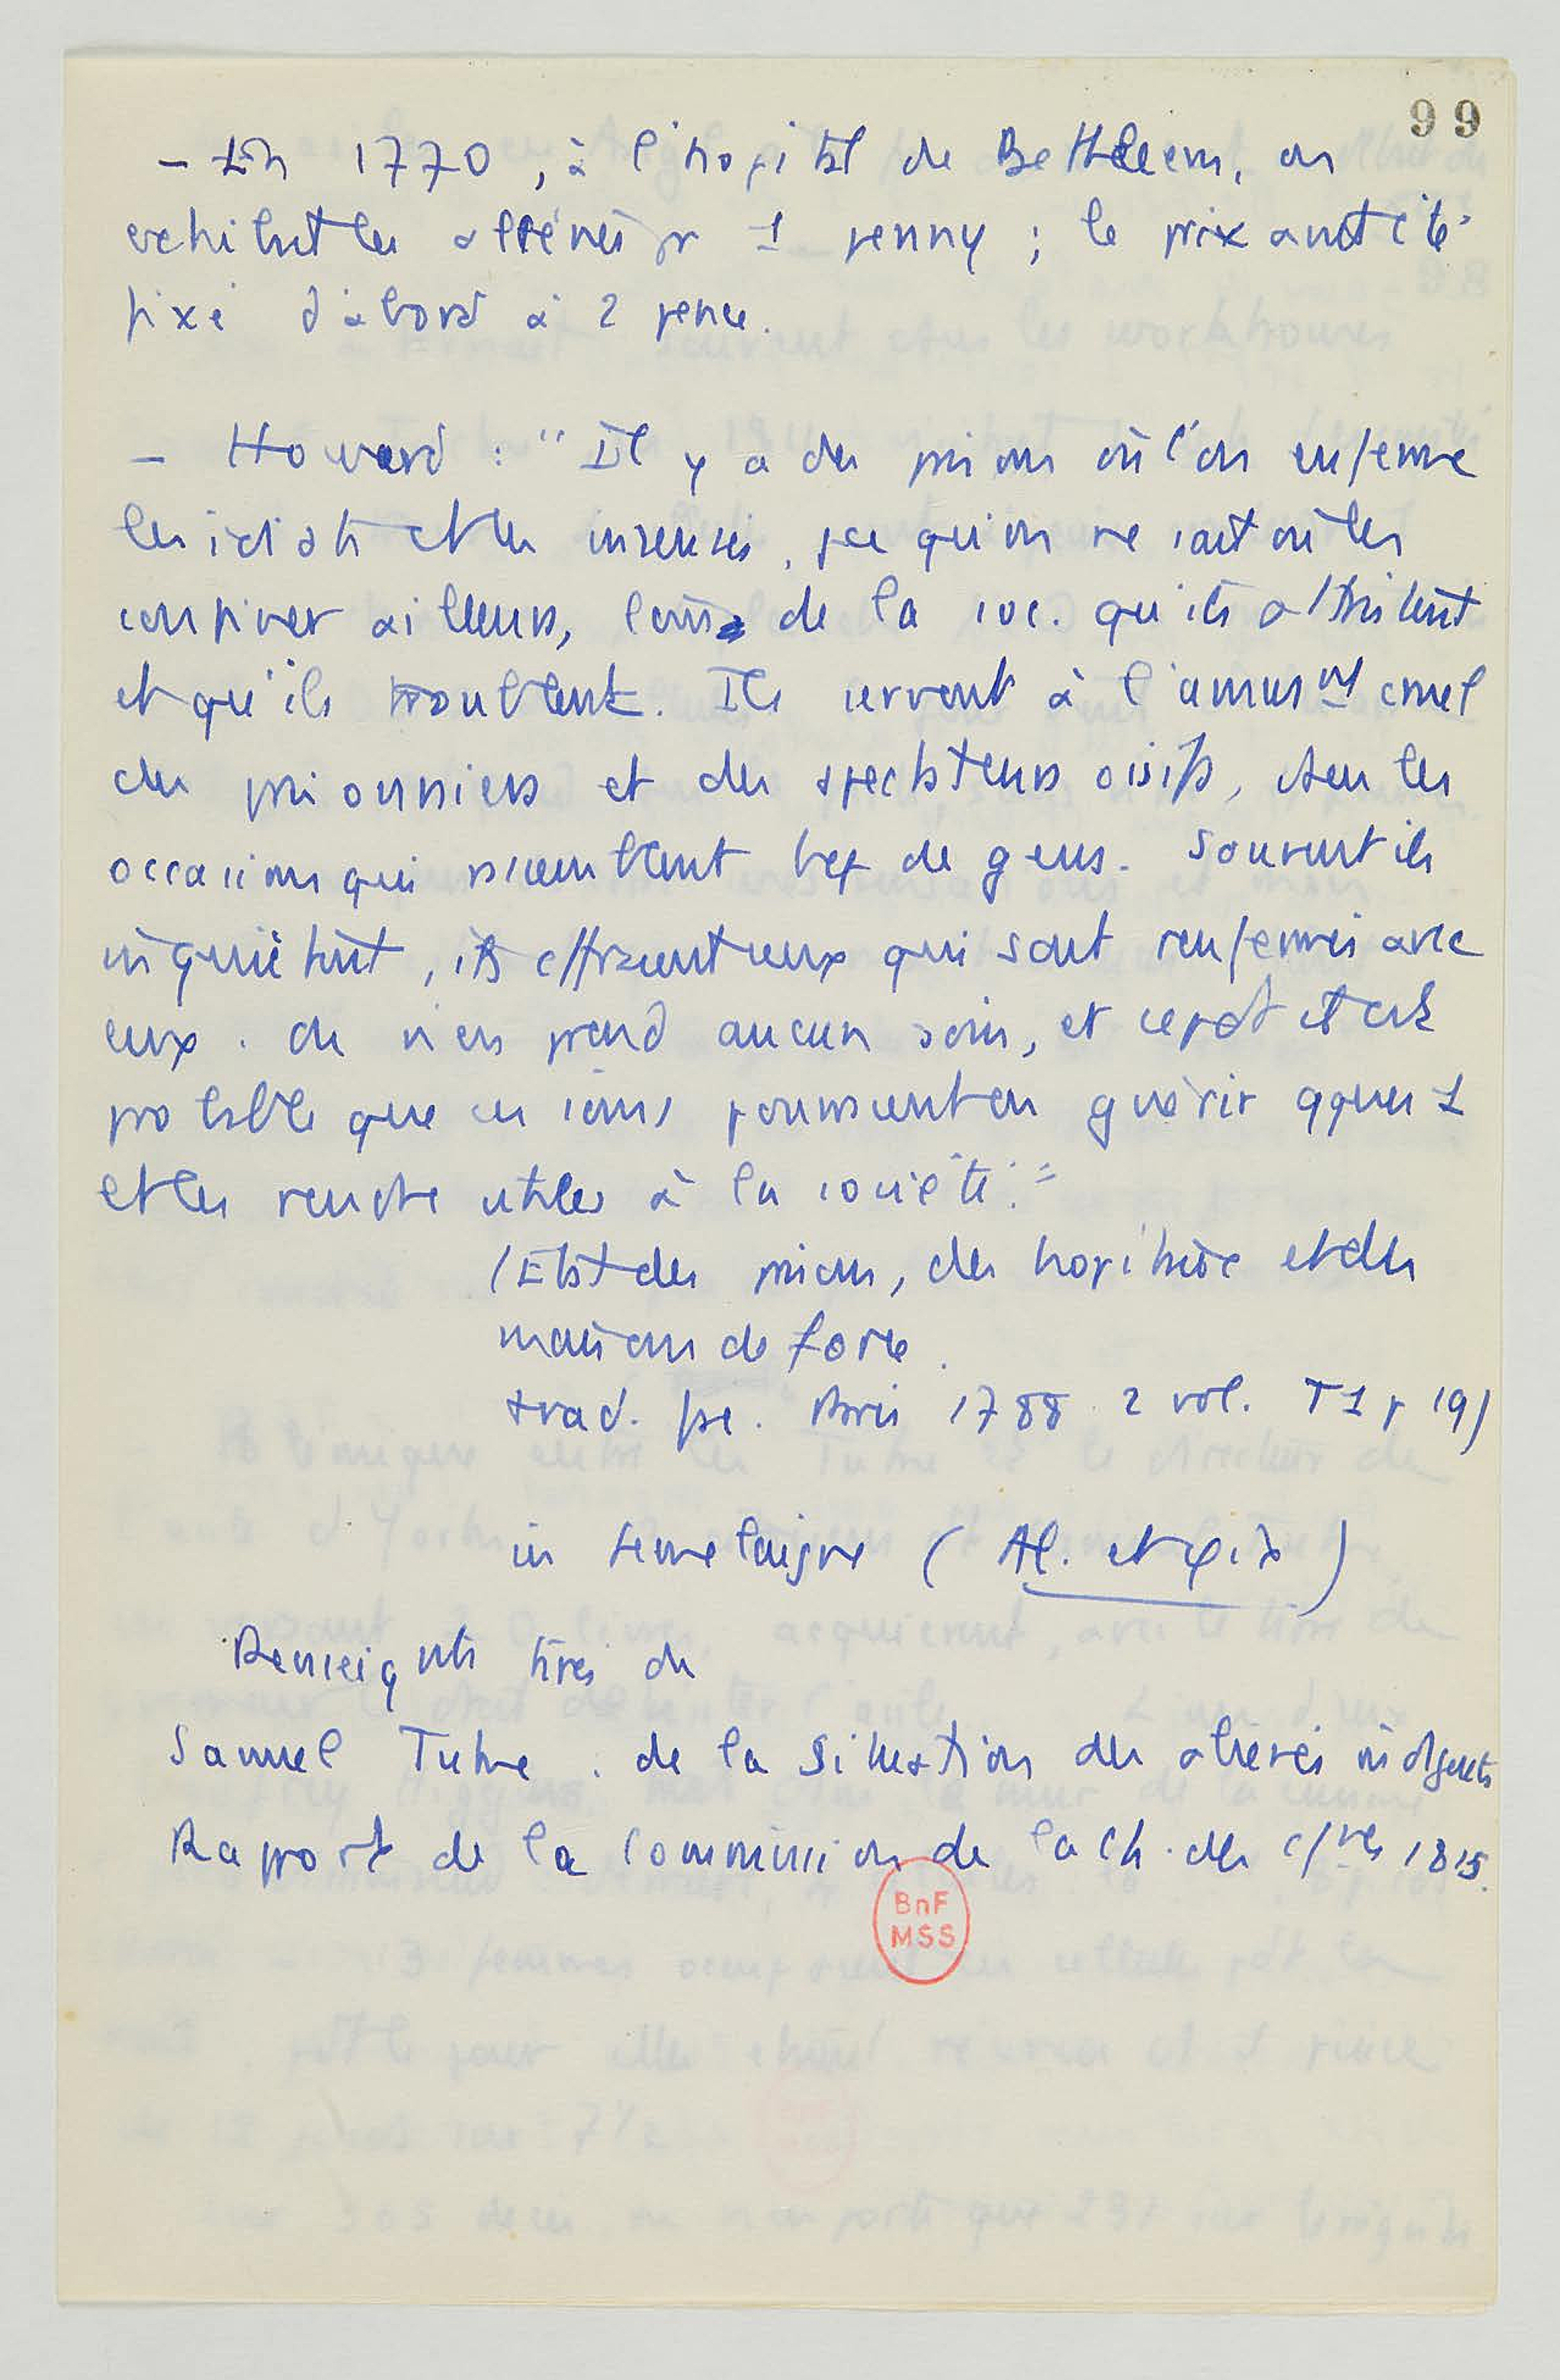 99
- En 1770, à l'hopital de Bethleem, on
exhibait les aliénés pr 1 penny ; le prix avait été
fixé d'abord à 2 pence.
- Howard : "Il y a des prisons où l'on enferme
les idiots et les insensés, pce qu'on ne sait où les
confiner ailleurs, loin de la soc. qu'ils attristent
et qu'ils troublent. Ils servent à l'amusmt cruel
des prisonniers et des spectateurs oisifs, dans les
occasions qui rassemblent bcp de gens. Souvent ils
inquiètent, ils effraient ceux qui sont renfermés avec
eux. On n'en prend aucun soin, et cepdt il est
probable que ces soins pourraient en guérir qques 1
et les rendre utiles à la société."
(Etat des prisons, des hopitaux et des
maisons de force.
trad. fse. Paris 1788. 2 vol. T 1 p 19)
in Semelaigne (Al. et φ)
Renseignts tirés de
Samuel Tuke. de la Situation des aliénés indigents
Rapport de la Commission de la Ch. des c/nes 1815.
BnF
MSS